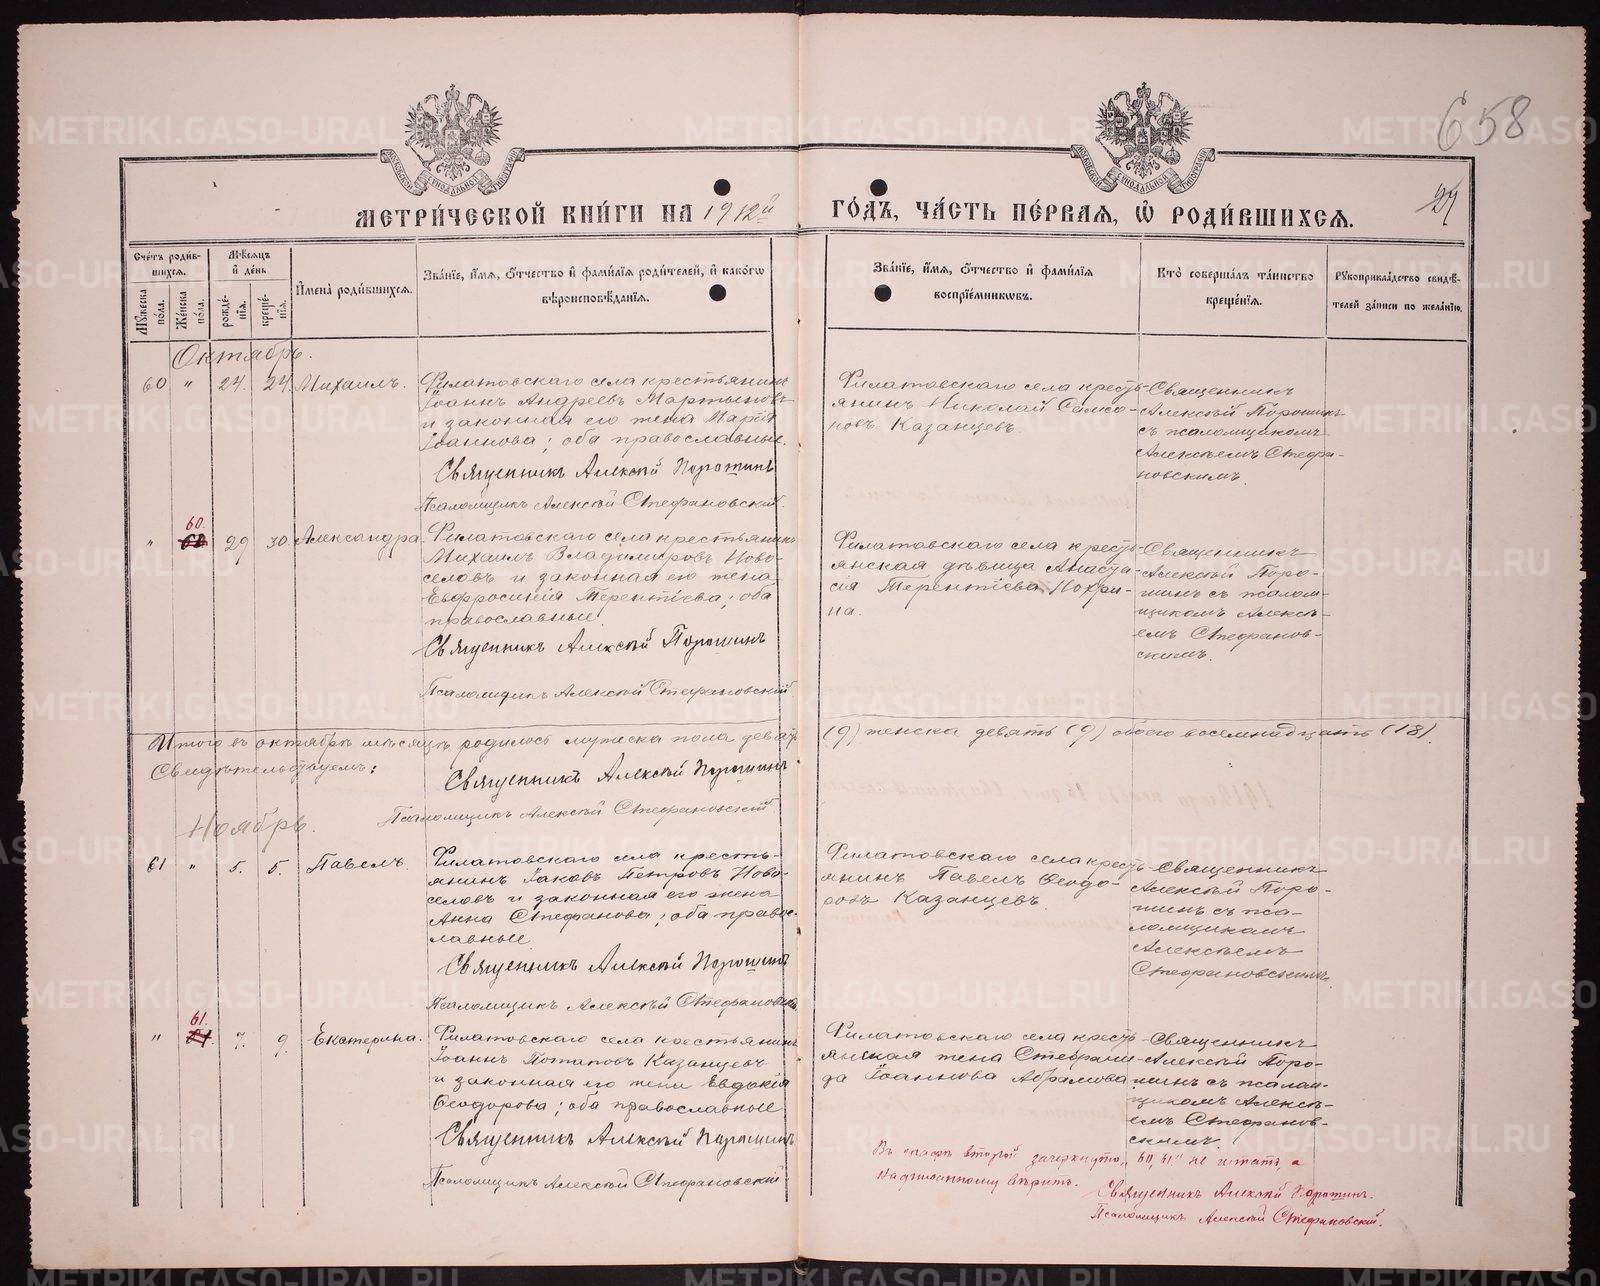 658
29
МЕТРИ́ЧЕСКОЙ КНИ́ГИ НА 1912й ГО́ДЪ, ЧА́СТЬ ПЕ́РВАЯ, Ѡ РОДИ́ВШИХСЯ.
Сче́тъ роди́в-
шихся.
Мѣ́сяцъ
и́ де́нь
Мꙋ́жеска по́ла.
Же́нска по́ла.
рожде́-
нїя.
креще́-
нїя.
И҆мена̀ роди́вшихся.
Зва́нїе, и҆́мя, ѻ҆́тчество и҆ фами́лїя роди́телей, и҆ како́гѡ
вѣроисповѣ́данїя.
Зва́нїе, и҆́мя, ѻ҆́тчество и҆ фами́лїя
воспрїе́мникѡвъ.
Кто̀ соверша́лъ та́инство
креще́нїя.
Рꙋкоприкла́дство свидѣ́-
телей за́писи по жела́нїю.
Октябрь.
60 " 24. 24 Михаилъ.
Филатовскаго села крестьянинъ
Іоаннъ Андреевъ Мартыновъ
и законная его жена Марія
Іоаннова; оба православные.
Священникъ Алексѣй Порошинъ
Псаломщикъ Алексѣй Стефановскій.
Филатовскаго села кресть-
янинъ Николай Самсо-
новъ Казанцевъ.
Священникъ
Алексѣй Порошинъ
съ псаломщикомъ
Алексѣемъ Стефа-
новскимъ.
60.
" 29 30. Александра.
Филатовскаго села крестьянинъ
Михаилъ Владиміровъ Ново-
селовъ и законная его жена
Евфросинія Терентіева; оба
православные.
Священникъ Алексѣй Порошинъ
Псаломщикъ Алексѣй Стефановскій
Филатовскаго села кресть-
янская дѣвица Анаста-
сія Терентіева Нохри-
на.
Священникъ
Алексѣй Поро-
шинъ съ псалом-
щикомъ Алексѣ-
емъ Стефанов-
скимъ.
Итого въ октябрѣ мѣсяцѣ родилось мужеска пола девять (9) женска девять (9) обоего восемнадцать (18).
Свидѣтельствуемъ:
Священникъ Алексѣй Порошинъ
Псаломщикъ Алексѣй Стефановскій
Ноябрь.
61 " 5. 5. Павелъ.
Филатовскаго села кресть-
янинъ Іаковъ Петровъ Ново-
селовъ и законная его жена
Анна Стефанова; оба право-
славные.
Священникъ Алексѣй Порошинъ
Псаломщикъ Алексѣй Стефановскій
Филатовскаго села кресть-
янинъ Павелъ Ѳеодо-
ровъ Казанцевъ.
Священникъ
Алексѣй Поро-
шинъ съ пса-
ломщикомъ
Алексѣемъ
Стефановскимъ.
61.
" 7. 9. Екатерина.
Филатовскаго села крестьянинъ
Іоаннъ Потаповъ Казанцевъ
и законная его жена Евдокія
Ѳеодорова; оба православные
Священникъ Алексѣй Порошинъ
Псаломщикъ Алексѣй Стефановскій.
Филатовскаго села кресть-
янская жена Стефани-
да Іоаннова Абрамова
Священникъ
Алексѣй Поро-
шинъ съ псалом-
щикомъ Алексѣ-
емъ Стефанов-
скимъ.
Въ графѣ второй зачеркнуто „60, 61" не читать, а
надписанному вѣрить.
Священникъ Алексѣй Порошинъ.
Псаломщикъ Алексѣй Стефановскій.